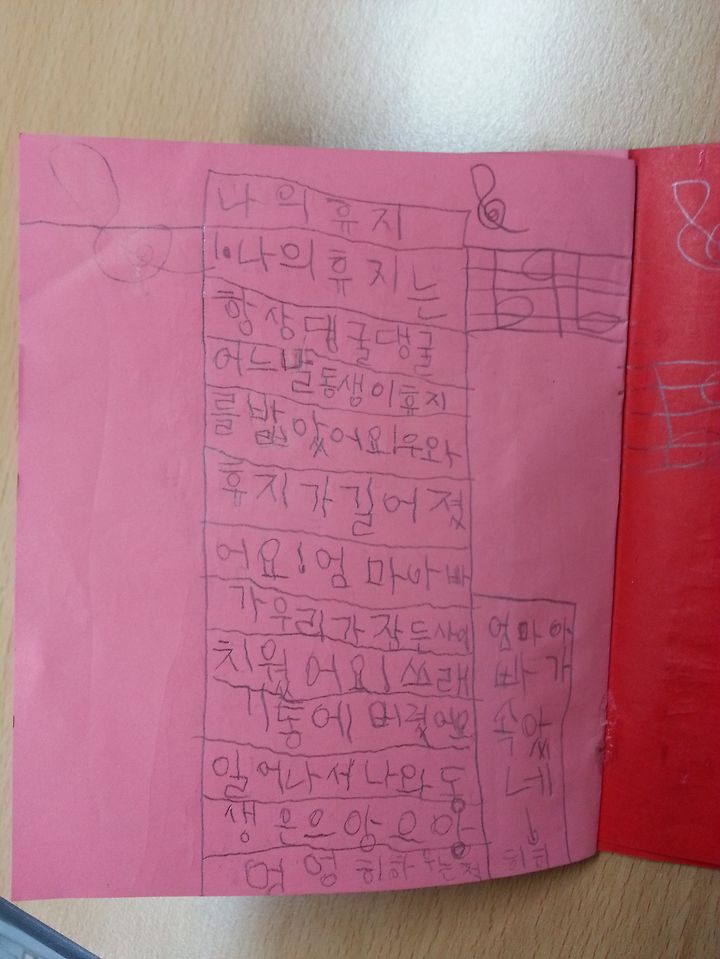 나의휴지
1.나의휴지는
항상댕굴댕굴
어느날동생이휴지
를밟았어요!우와
휴지가길어졌
어요!엄마아빠
가우리가잠든사이
치웠어요!쓰래
기통에버렸어요
일어나서나와동
생은으앙으앙
엉엉히하우는척
엄마아
빠가
속았
네!
히히